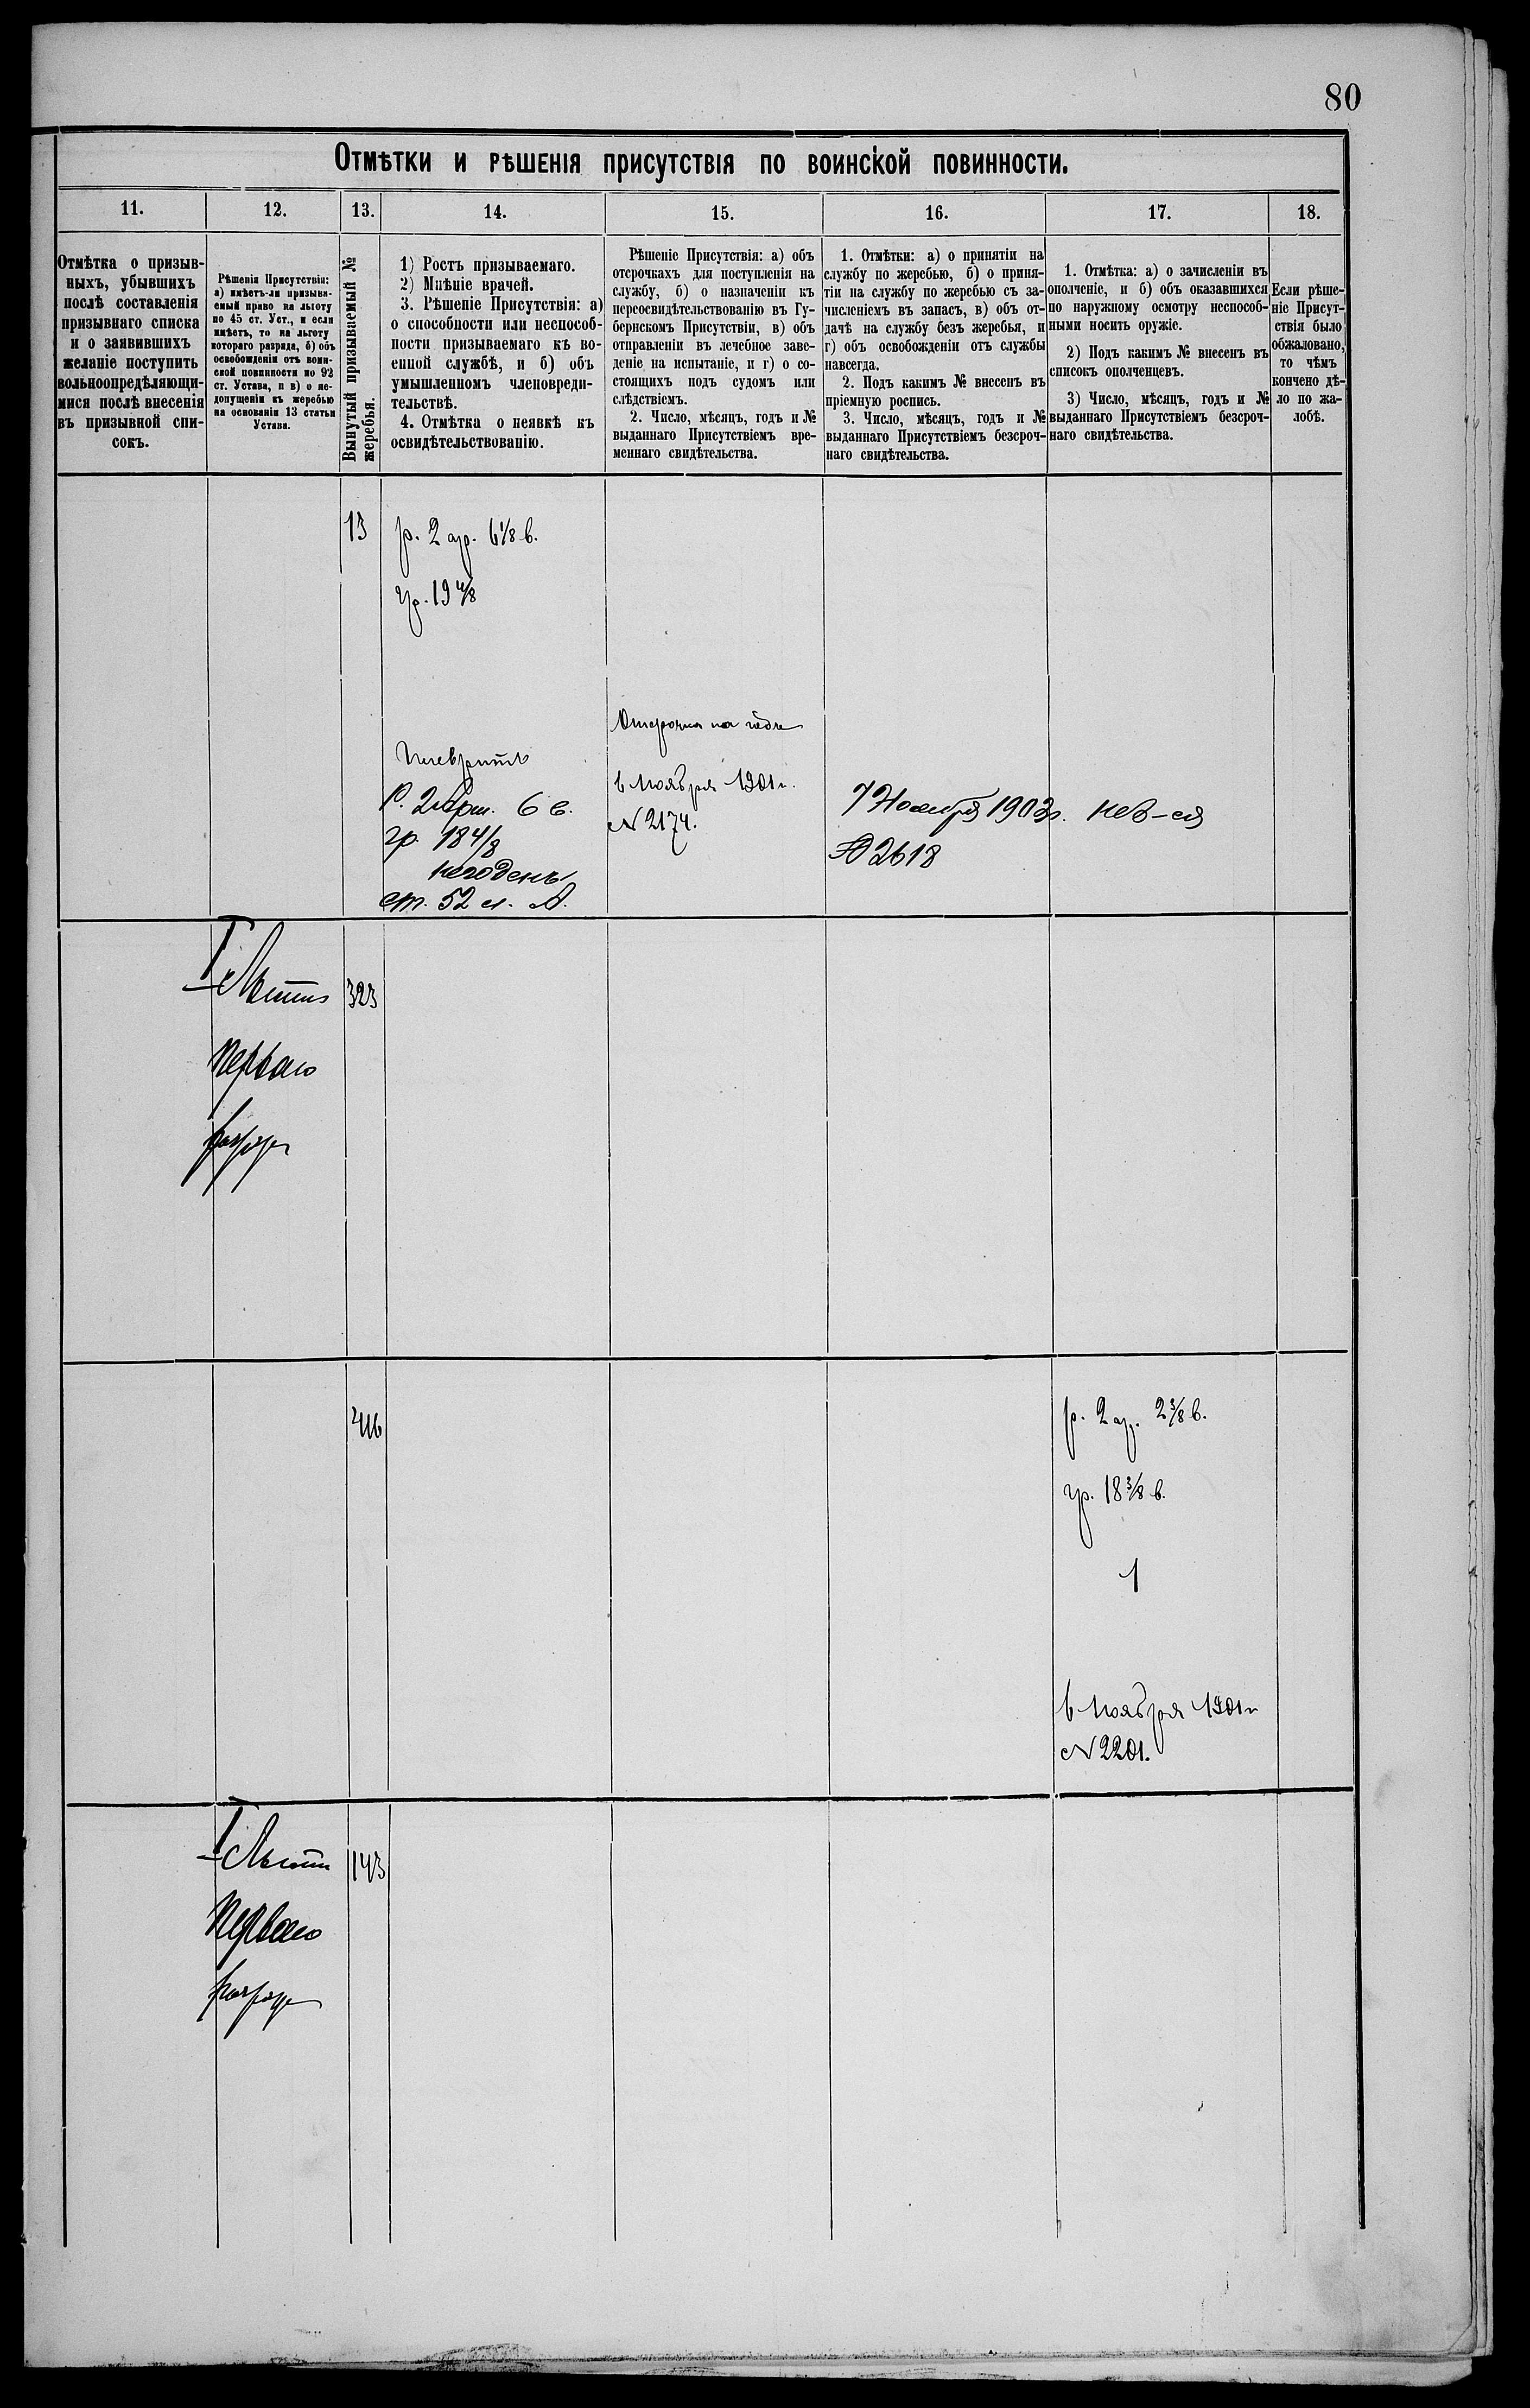 80
Отмѣтки и рѣшенія присутствія по воинской повинности.
11. 12. 13. 14. 15. 16. 17. 18.
Отмѣтка о призыв-
ныхъ, убывшихъ
послѣ составленія
призывнаго списка
и о заявившихъ
желаніе поступить
вольноопредѣляющи-
мися послѣ внесенія
въ призывной спи-
сокъ.
Рѣшенія Присутствія:
а) имѣетъ-ли призыва-
емый право на льготу
по 45 ст. Уст., и если
имѣетъ, то на льготу
котораго разряда, б) объ
освобожденіи отъ воин-
ской повинности по 92
ст. Устава, и в) о не-
допущеніи къ жеребью
на основаніи 13 статьи
Устава.
Вынутый призываемый №
жеребья.
1) Ростъ призываемаго.
2) Мнѣніе врачей.
3. Рѣшеніе Присутствія: а)
о способности или неспособ-
ности призываемаго къ во-
енной службѣ, и б) объ
умышленномъ членовреди-
тельствѣ.
4. Отмѣтка о неявкѣ къ
освидѣтельствованію.
Рѣшеніе Присутствія: а) объ
отсрочкахъ для поступленія на
службу, б) о назначеніи къ
переосвидѣтельствованію въ Гу-
бернскомъ Присутствіи, в) объ
отправленіи въ лечебное заве-
деніе на испытаніе, и г) о со-
стоящихъ подъ судомъ или
слѣдствіемъ.
2. Число, мѣсяцъ, годъ и №
выданнаго Присутствіемъ вре-
меннаго свидѣтельства.
1. Отмѣтки: а) о принятіи на
службу по жеребью, б) о приня-
тіи на службу по жеребью съ за-
численіемъ въ запасъ, в) объ от-
дачѣ на службу безъ жеребья, и
г) объ освобожденіи отъ службы
навсегда.
2. Подъ какимъ № внесенъ въ
пріемную роспись.
3. Число, мѣсяцъ, годъ и №
выданнаго Присутствіемъ безсроч-
наго свидѣтельства.
1. Отмѣтка: а) о зачисленіи въ
ополченіе, и б) объ оказавшихся
по наружному осмотру неспособ-
ными носить оружіе.
2) Подъ какимъ № внесенъ въ
списокъ ополченцевъ.
3) Число, мѣсяцъ, годъ и №
выданнаго Присутствіемъ безсроч-
наго свидѣтельства.
Если рѣше-
ніе Присут-
ствія было
обжаловано,
то чѣмъ
кончено дѣ-
ло по жа-
лобѣ.
13
р. 2 ар. 6 1/8 в.
гр. 19 4/8
Плевритъ
Р. 2 арш. 6 в.
гр. 18 4/8
негоденъ
ст. 52 л. А.
Отсрочка на годъ
6 ноября 1901 г.
№ 2174.
7 Ноября 1902 г. нев-ся
№ 2618
I Льгота
перваго
разряда
323
416
р. 2 ар. 2 3/8 в.
гр. 18 3/8 в.
1
6 ноября 1901 г
№ 2201.
I Льгота
Перваго
разряда
143